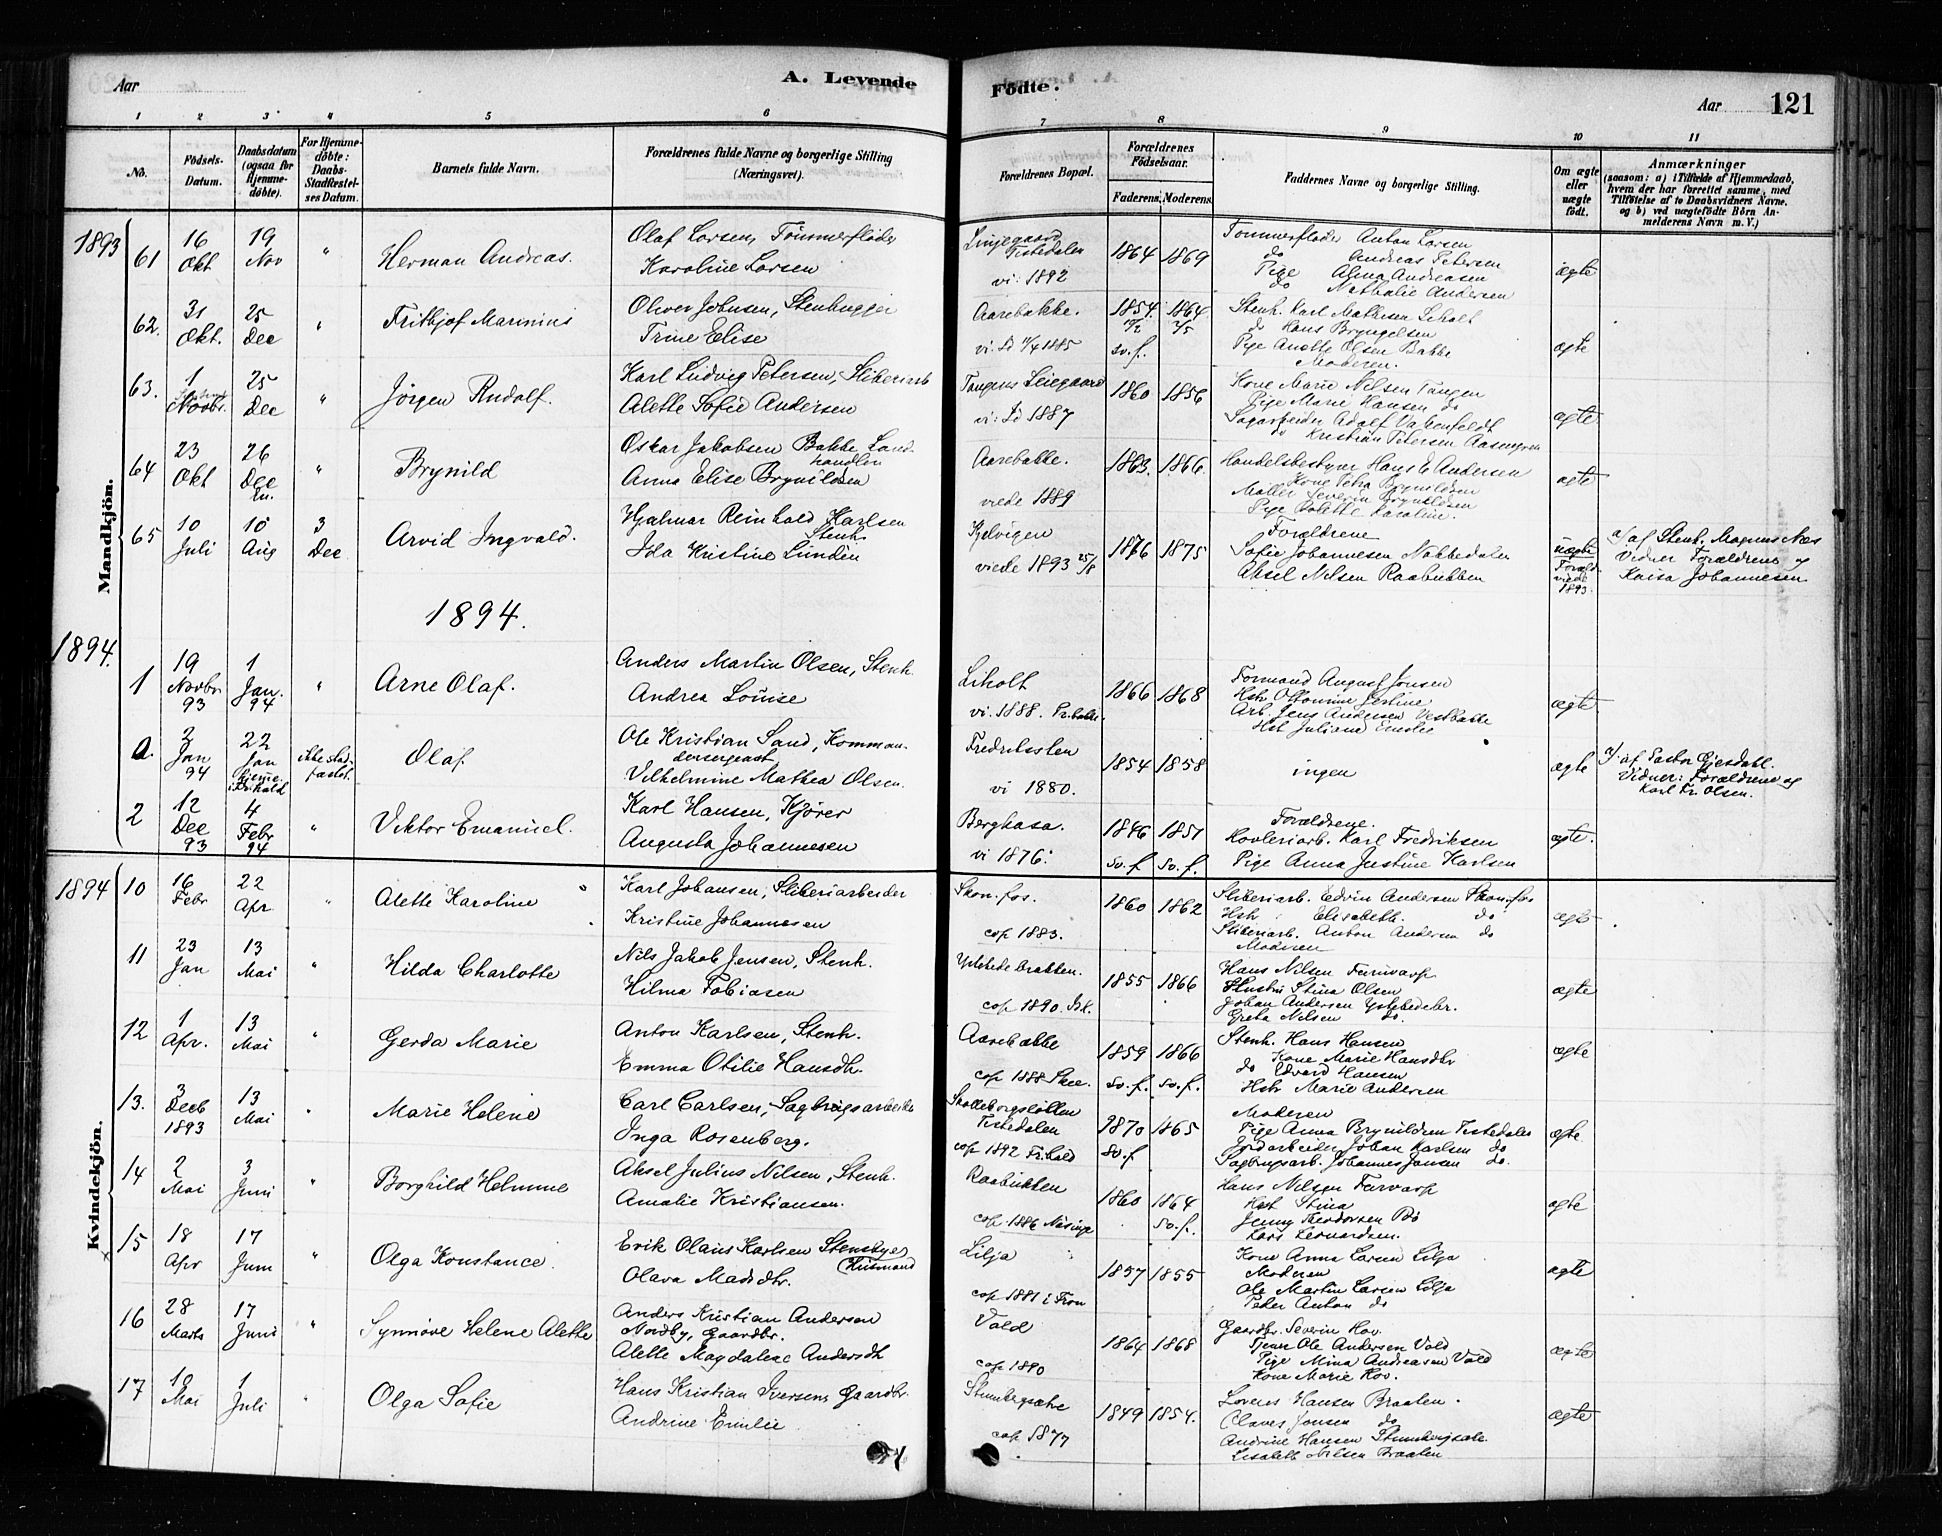 Aar
A. Levende
1 2 3 4 5 6
No.
Födsels-
Datum.
Daabsdatum
(ogsaa for
Hjemme-
döbte).
For Hjemme-
döbte:
Daabs-
Stadfæstel-
ses Datum.
Barnets fulde Navn.
Forældrenes fulde Navne og borgerlige Stilling
(Næringsvei).
Mandkjön.
1893
61 16 Okt 19 Nov " Herman Andreas.
Olaf Larsen, Tömmerfløder
Karoline Larsen
62. 31 Okt. 25 Dec " Fritbjof Marinius
Oliver Johnsen, Stenhugger
Trine Elise
63. 1 Novbr. 25 Dec " Jörgen Rudolf.
Karl Ludvig Petersen, Sliberiarb
Alette Sofie Andersen
64 23 Okt 26 Dec " Brynild
Oskar Jakobsen Bakke Land-
handler
Anna Elise Brynildsen
65 10 Juli 10 Aug 3 Dec Arvid Ingvald.
Hjalmar Reinhold Karlsen
Stenh.
Ida Kristine Lundin
1894.
1894.
1 19 Novbr 93 1 Jan. 94 " Arne Olaf.
Anders Martin Olsen, Stenh.
Andrea Louise
a. 2 Jan 94 22 Jan ikke stad-
fæstet. Olaf
Ole Kristian Sand, Komman-
dersergeant
Vilhelmine Mathea Olsen.
2 12 Dec 93 4 Febr 94 " Viktor Emanuel.
Karl Hansen, Kjörer
Augusta Johannesen
Kvindekjön.
1894 10 16 Febr 22 Apr " Alette Karoline
Karl Johansen, Sliberiarbeider
Kristine Johannesen
11 23 Jan 13 Mai " Hilda Charlotte
Nils Jakob Jensen, Stenh.
Hilma Tobiasen
12 1 Apr. 13 Mai " Gerda Marie
Anton Karlsen, Stenh.
Emma Otilie Hansdtr.
13. 3 Decb 1893 13 Mai " Marie Helene
Carl Carlsen, Sagbrugsarbeider
Inga Rosenberg.
14 2 Mai 3 Juni " Borghild Helmine
Aksel Julius Nilsen, Stenh.
Amalie Kristiansen.
15 18 Apr 17 Juni " Olga Konstance.
Erik Olaus Karlsen
Husmand
Olava Madsdtr.
16 28 Marts 17 Juni " Synnöve Helene Alette
Anders Kristian Andersen
Nordby, Gaardbr.
Alette Magdalene Andersdtr
17 10 Mai 1 Juli " Olga Sofie
Hans Kristian Iversen, Gaardbr.
Andrine Emilie
Födte.
Aar 121
7 8 9 10 11
Forældrenes Bopæl.
Forældrenes
Födselsaar.
Faderens. Moderens.
Faddernes Navne og borgerlige Stilling.
Om ægte
eller
uægte
födt.
Anmærkninger
(saasom: a) i Tilfælde af Hjemmedaab,
hvem der har forrettet samme, med
Tilföielse af to Daabsvidners Navne.
og b) ved uægtefödte Börn An-
melderens Navn m. V.)
Tistedalen
vi: 1892
1864 1869
Tömmerfløder Anton Larsen
do Andreas Petersen
Pige Alma Andreasen
do Nathalie Andersen
ægte
Aarebakke.
1854. 1864
Sv. f.
Stenh. Karl Mathisen Liholt
do Hans Bryngelsen
Pige Anette Olsen Bakke
Moderen.
ægte
vi: 1887
1860 1856
Kone Marie Nilsen Tangen
Pige Marie Hansen do
do Kristian Petersen
ægte
Aarebakke.
viede 1889
1863. 1866.
Handelsbestyrer Hans E Andersen
Kone Petra Brynildsen
Møller Severin Brynildsen
Pige Valette Karoline.
ægte
viede 1893 25/8
1876 1875
Forældrene
Sofie Johannesen Nakkedalen
Aksel Nilsen Raabukken
uægte
Foræld.
viede
1893.
a) af Stenh. Magnus Næs
Vidner Forældrene og
Kaisa Johannesen
Liholt
vi. 1888.
1866 1868
Formand August Jonsen
Arb. Jens Andersen Vestbakke
ægte
Fredriksten
vi 1880.
1854 1858
ingen
ægte
af Pastor Gjesdahl.
Vidner: Forældrene og
Karl Fr. Olsen.
Berghasa.
vi 1876.
1846 1851
Sv. f. Sv. f.
Forældrene.
Hovleriarb. Karl Fredriksen
Pige Anna Justine Karlsen
ægte.
Skonfos.
cop 1883.
1860 1862
Sliberiarb. Edvin Andersen Skonfos
Hstr Elisabeth. do
Sliberiarb. Anton Andersen do
Moderen
ægte
cop 1890.
1855 1866
Hans Nilsen
Hustru Stina Olsen
Johan Andersen
Greta Nilsen do.
ægte
Aarebakke
cop 1888 Skee.
1859 1866
Sv. f. Sv. f.
Stenh. Hans Hansen
Kone Marie Hansdtr
do Edvard Hansen
Hstr Marie Andersen
ægte
Tistedalen
cop 1892 Fr.hald
1870 1865
Sv. f
Moderen
Pige Anna Brynildsen Tistedalen
Jordarbeider Johan Karlsen do
Sagbrugsarb. Johannes Jansen do.
ægte
Raabukken
cop 1886 Näsinge
1860 1864
Sv. f.
Hans Nilsen
Hst Stina
Jenny Theodorsen Bö
Lars Leonardsen.
ægte
Lilja
cop 1881 i Tron
1857 1855
Kone Anna Larsen Lilja
Moderen
Ole Martin Larsen Lilja
Peder Anton do
ægte
Vold
cop 1890
1864 1868
Gaardbr. Severin Hov.
Tjener Ole Andersen Vold
Pige Mina Andreasen Vold
Kone Marie Hov.
ægte
cop 1877
1849 1854.
Lovens Hansen Braaten.
Olaves Jensen do
Andrine Hansen
Lisabeth Nilsen Braaten
ægte